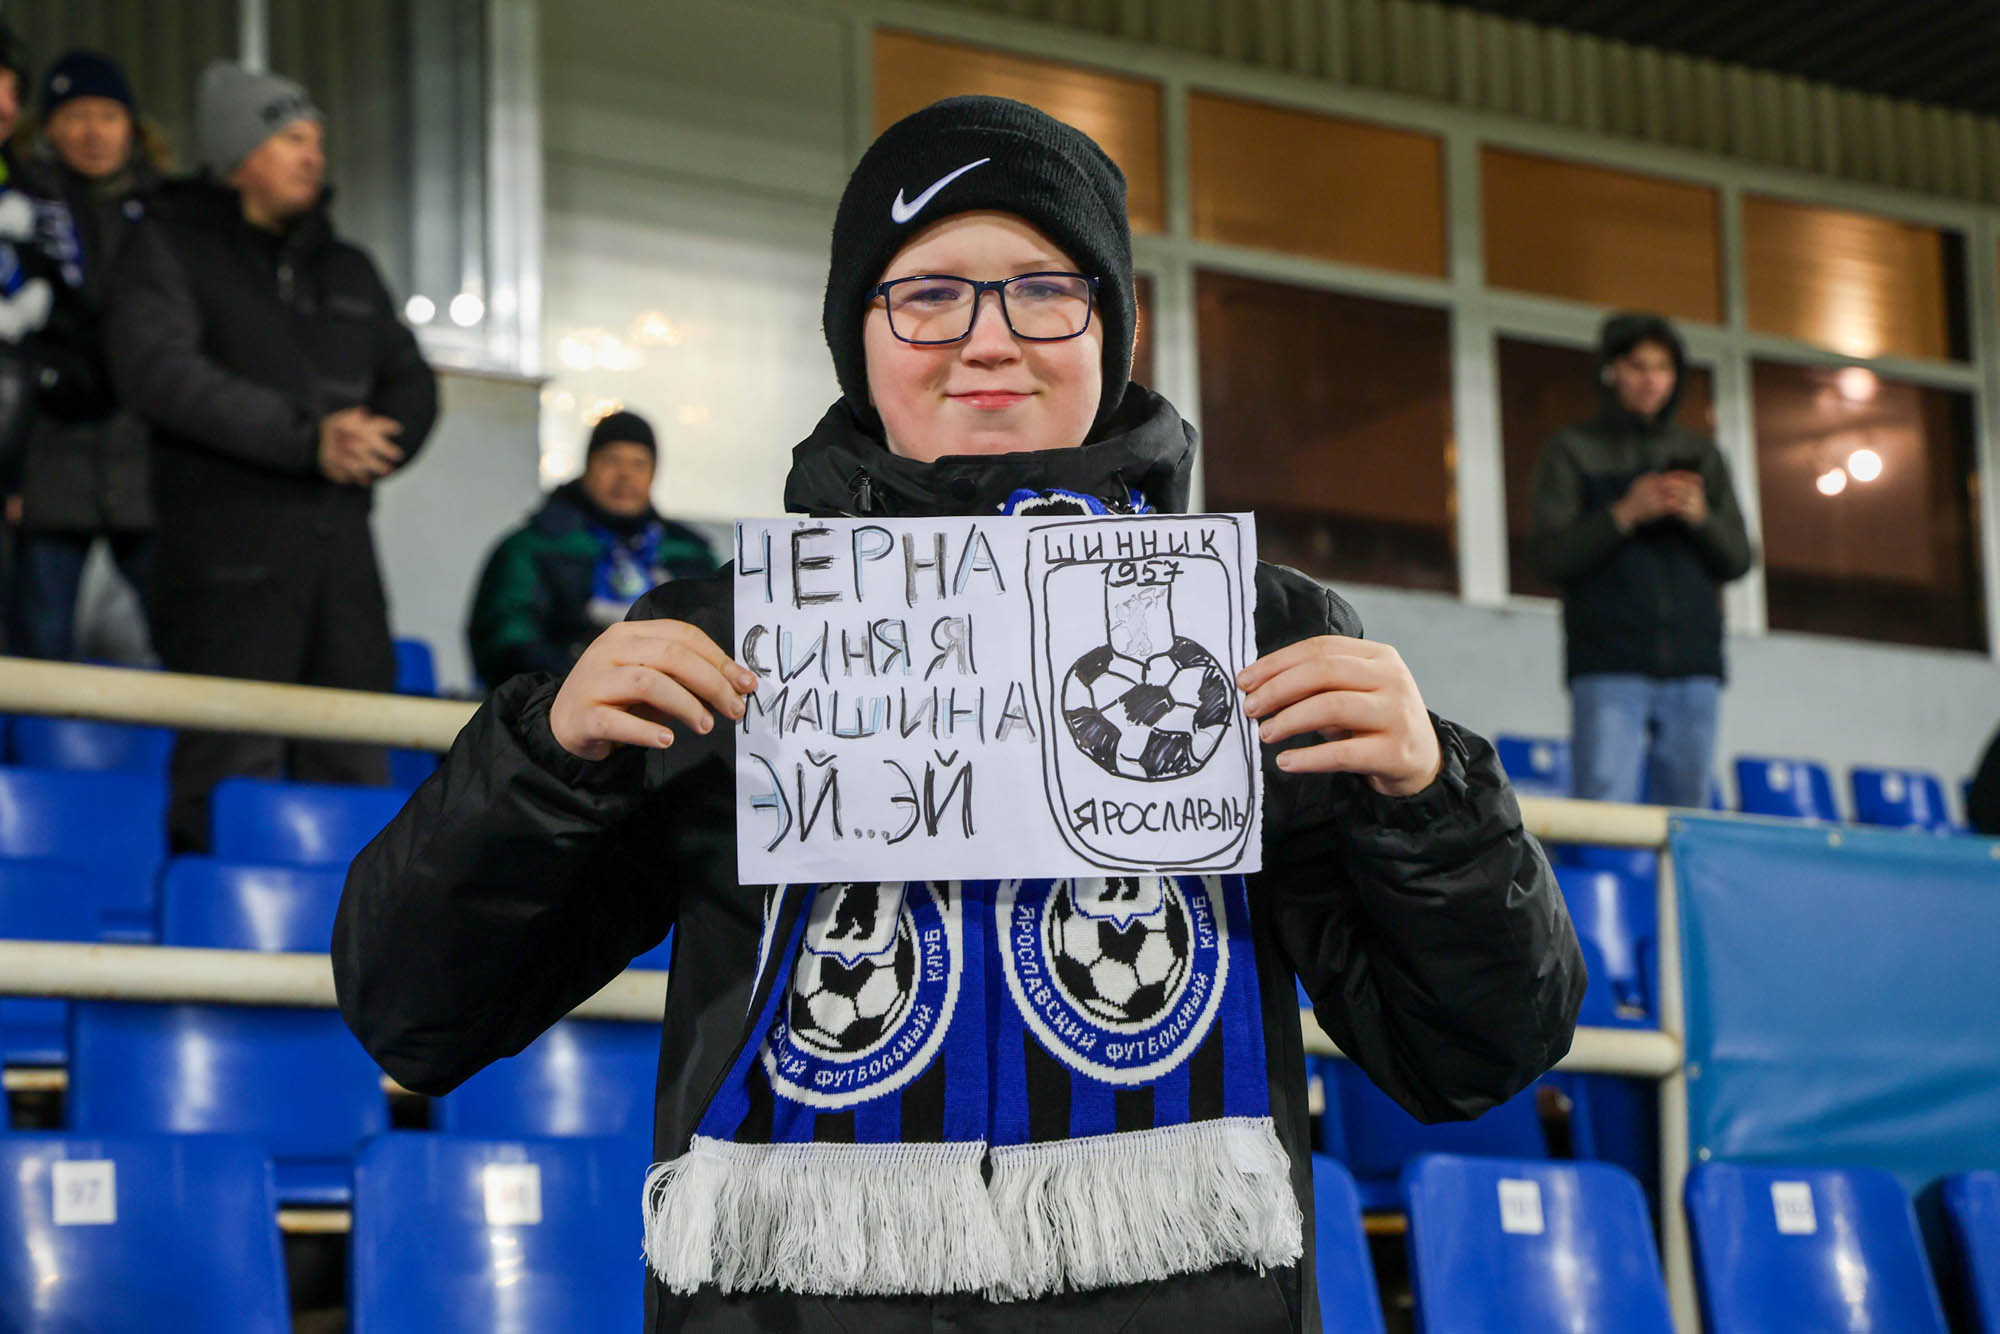 ЧЁРНА
СИНЯЯ
МАШИНА
ЭЙ...ЭЙ
ШИННИК
1957
ЯРОСЛАВЛЬ
ВСКИЙ ФУТБОЛЬНЫЙ КЛУБ
ЯРОСЛАВСКИЙ ФУТБОЛЬНЫЙ КЛУБ
97